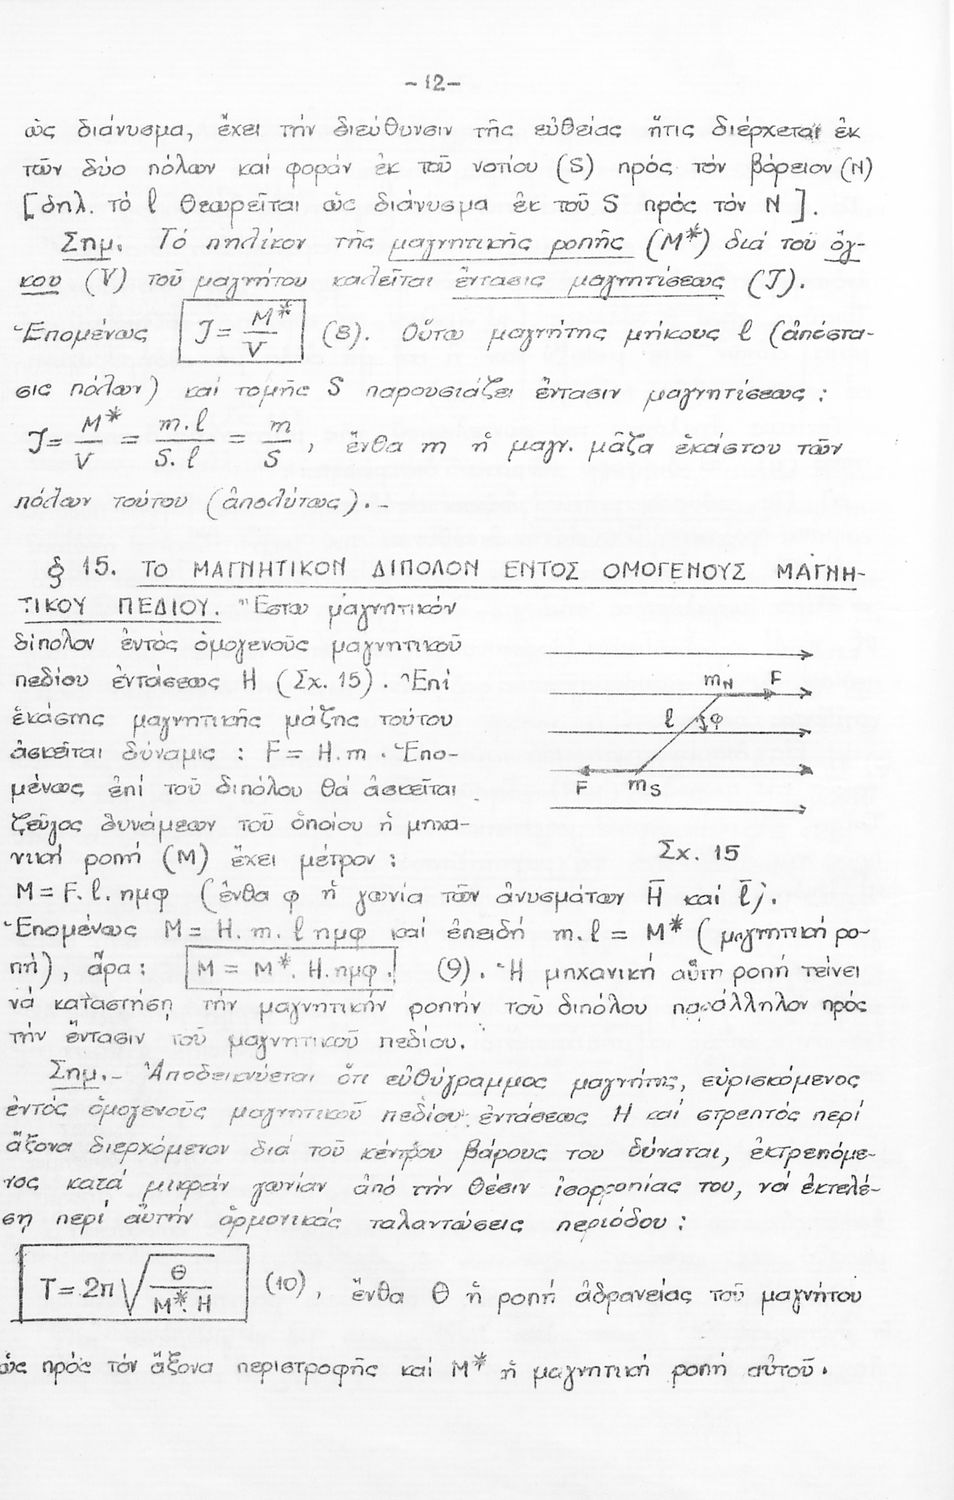 -12-
ὡς διάνυσμα, ἔχει τήν διεύθυνσιν τῆς εὐθείας ἥτις διέρχεται ἐκ
τῶν δύο πόλων καί φοράν ἐκ τοῦ νοτίου (S) πρός τόν βόρειον (N)
[δηλ. τό l θεωρεῖται ὡς διάνυσμα ἐκ τοῦ S πρός τόν N].
Σημ. Τό πηλίκον τῆς μαγνητικῆς ροπῆς (M*) διά τοῦ ὄγ-
κου (V) τοῦ μαγνήτου καλεῖται ἔντασις μαγνητίσεως (J).
Ἑπομένως J = M*/V (8). Οὕτω μαγνήτης μήκους l (ἀπόστα-
σις πόλων) καί τομῆς S παρουσιάζει ἔντασιν μαγνητίσεως :
J = M*/V = m.l/S.l = m/S , ἔνθα m ἡ μαγν. μᾶζα ἑκάστου τῶν
πόλων τούτου (ἀπολύτως).-
§ 15. ΤΟ ΜΑΓΝΗΤΙΚΟΝ ΔΙΠΟΛΟΝ ΕΝΤΟΣ ΟΜΟΓΕΝΟΥΣ ΜΑΓΝΗ-
ΤΙΚΟΥ ΠΕΔΙΟΥ. Ἔστω μαγνητικόν
δίπολον ἐντός ὁμογενοῦς μαγνητικοῦ
πεδίου ἐντάσεως H (Σχ. 15). Ἐπί
ἑκάστης μαγνητικῆς μάζης τούτου
ἀσκεῖται δύναμις : F = H.m . Ἑπο-
μένως ἐπί τοῦ διπόλου θά ἀσκεῖται
ζεῦγος δυνάμεων τοῦ ὁποίου ἡ μηχα-
νική ροπή (M) ἔχει μέτρον :
mN F
l φ
F mS
Σχ. 15
M = F.l.ημφ (ἔνθα φ ἡ γωνία τῶν ἀνυσμάτων H̅ καί l̅).
Ἑπομένως M = H.m.l ημφ καί ἐπειδή m.l = M* (μαγνητική ρο-
πή), ἄρα : M = M*.H.ημφ. (9). Ἡ μηχανική αὕτη ροπή τείνει
νά καταστήσῃ τήν μαγνητικήν ροπήν τοῦ διπόλου παράλληλον πρός
τήν ἔντασιν τοῦ μαγνητικοῦ πεδίου.
Σημ.- Ἀποδεικνύεται ὅτι εὐθύγραμμος μαγνήτης, εὑρισκόμενος
ἐντός ὁμογενοῦς μαγνητικοῦ πεδίου ἐντάσεως H καί στρεπτός περί
ἄξονα διερχόμενον διά τοῦ κέντρου βάρους του δύναται, ἐκτρεπόμε-
νος κατά μικράν γωνίαν ἀπό τήν θέσιν ἰσορροπίας του, νά ἐκτελέ-
σῃ περί αὐτήν ἁρμονικάς ταλαντώσεις περιόδου :
T = 2π √(Θ/M*.H) (10) , ἔνθα Θ ἡ ροπή ἀδρανείας τοῦ μαγνήτου
ὡς πρός τόν ἄξονα περιστροφῆς καί M* ἡ μαγνητική ροπή αὐτοῦ.